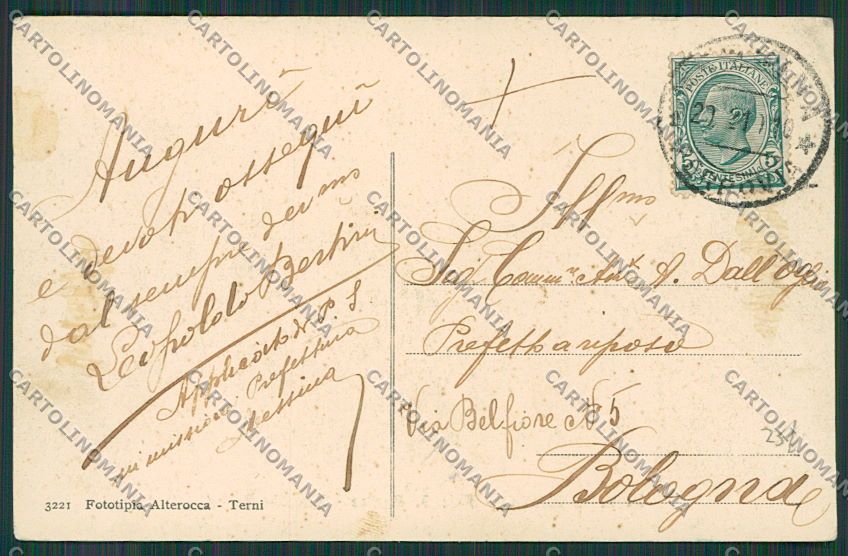 Auguri
e devoti ossequi
dal sempre dev.mo
Leopoldo Bertini
Applicato di P. S.
in missione Prefettura
Messina
3221 Fototipia Alterocca - Terni
POSTE ITALIANE
5 CENTESIMI 5
Ill.mo
Sig. Comm.re A. Dall'Oglio
Prefetto a riposo
Via Belfiore N. 5
Bologna
CARTOLINOMANIA